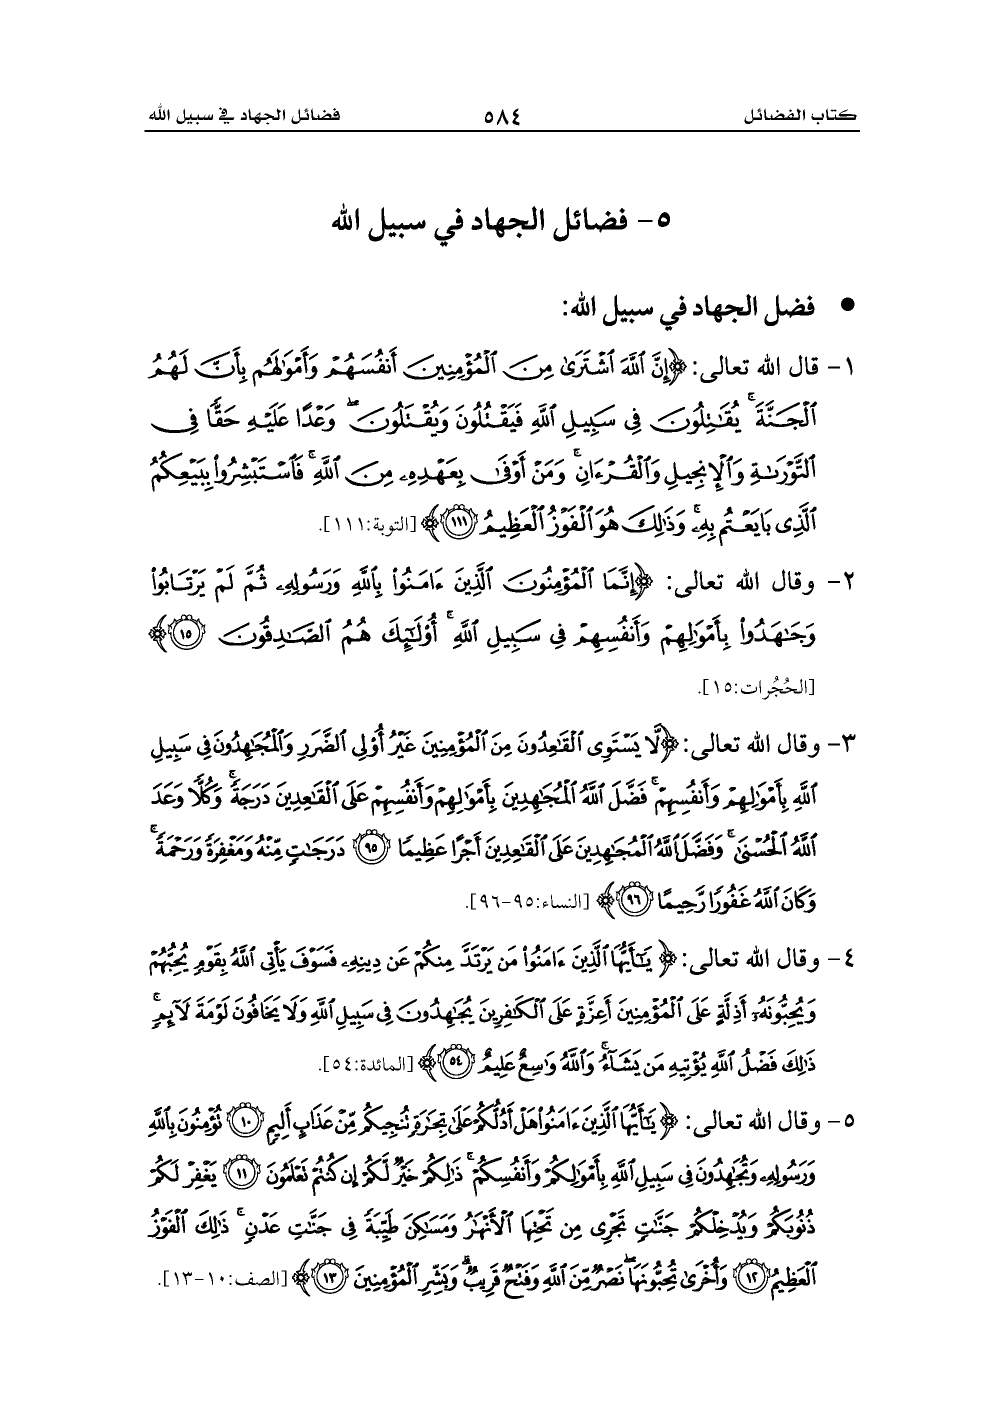 كتاب الفضائل ٥٨٤ فضائل الجهاد في سبيل الله
٥- فضائل الجهاد في سبيل الله
● فضل الجهاد في سبيل الله:
١- قال الله تعالى: ﴿إِنَّ ٱللَّهَ ٱشْتَرَىٰ مِنَ ٱلْمُؤْمِنِينَ أَنفُسَهُمْ وَأَمْوَٰلَهُم بِأَنَّ لَهُمُ
ٱلْجَنَّةَ ۚ يُقَٰتِلُونَ فِى سَبِيلِ ٱللَّهِ فَيَقْتُلُونَ وَيُقْتَلُونَ ۖ وَعْدًا عَلَيْهِ حَقًّا فِى
ٱلتَّوْرَىٰةِ وَٱلْإِنجِيلِ وَٱلْقُرْءَانِ ۚ وَمَنْ أَوْفَىٰ بِعَهْدِهِۦ مِنَ ٱللَّهِ ۚ فَٱسْتَبْشِرُوا۟ بِبَيْعِكُمُ
ٱلَّذِى بَايَعْتُم بِهِۦ ۚ وَذَٰلِكَ هُوَ ٱلْفَوْزُ ٱلْعَظِيمُ ١١١﴾ [التوبة:١١١].
٢- وقال الله تعالى: ﴿إِنَّمَا ٱلْمُؤْمِنُونَ ٱلَّذِينَ ءَامَنُوا۟ بِٱللَّهِ وَرَسُولِهِۦ ثُمَّ لَمْ يَرْتَابُوا۟
وَجَٰهَدُوا۟ بِأَمْوَٰلِهِمْ وَأَنفُسِهِمْ فِى سَبِيلِ ٱللَّهِ ۚ أُو۟لَٰٓئِكَ هُمُ ٱلصَّٰدِقُونَ ١٥﴾
[الحُجُرات:١٥].
٣- وقال الله تعالى: ﴿لَّا يَسْتَوِى ٱلْقَٰعِدُونَ مِنَ ٱلْمُؤْمِنِينَ غَيْرُ أُو۟لِى ٱلضَّرَرِ وَٱلْمُجَٰهِدُونَ فِى سَبِيلِ
ٱللَّهِ بِأَمْوَٰلِهِمْ وَأَنفُسِهِمْ ۚ فَضَّلَ ٱللَّهُ ٱلْمُجَٰهِدِينَ بِأَمْوَٰلِهِمْ وَأَنفُسِهِمْ عَلَى ٱلْقَٰعِدِينَ دَرَجَةً ۚ وَكُلًّا وَعَدَ
ٱللَّهُ ٱلْحُسْنَىٰ ۚ وَفَضَّلَ ٱللَّهُ ٱلْمُجَٰهِدِينَ عَلَى ٱلْقَٰعِدِينَ أَجْرًا عَظِيمًا ٩٥ دَرَجَٰتٍ مِّنْهُ وَمَغْفِرَةً وَرَحْمَةً ۚ
وَكَانَ ٱللَّهُ غَفُورًا رَّحِيمًا ٩٦﴾ [النساء:٩٥-٩٦].
٤- وقال الله تعالى: ﴿يَٰٓأَيُّهَا ٱلَّذِينَ ءَامَنُوا۟ مَن يَرْتَدَّ مِنكُمْ عَن دِينِهِۦ فَسَوْفَ يَأْتِى ٱللَّهُ بِقَوْمٍ يُحِبُّهُمْ
وَيُحِبُّونَهُۥٓ أَذِلَّةٍ عَلَى ٱلْمُؤْمِنِينَ أَعِزَّةٍ عَلَى ٱلْكَٰفِرِينَ يُجَٰهِدُونَ فِى سَبِيلِ ٱللَّهِ وَلَا يَخَافُونَ لَوْمَةَ لَآئِمٍ ۚ
ذَٰلِكَ فَضْلُ ٱللَّهِ يُؤْتِيهِ مَن يَشَآءُ ۚ وَٱللَّهُ وَٰسِعٌ عَلِيمٌ ٥٤﴾ [المائدة:٥٤].
٥- وقال الله تعالى: ﴿يَٰٓأَيُّهَا ٱلَّذِينَ ءَامَنُوا۟ هَلْ أَدُلُّكُمْ عَلَىٰ تِجَٰرَةٍ تُنجِيكُم مِّنْ عَذَابٍ أَلِيمٍ ١٠ تُؤْمِنُونَ بِٱللَّهِ
وَرَسُولِهِۦ وَتُجَٰهِدُونَ فِى سَبِيلِ ٱللَّهِ بِأَمْوَٰلِكُمْ وَأَنفُسِكُمْ ۚ ذَٰلِكُمْ خَيْرٌ لَّكُمْ إِن كُنتُمْ تَعْلَمُونَ ١١ يَغْفِرْ لَكُمْ
ذُنُوبَكُمْ وَيُدْخِلْكُمْ جَنَّٰتٍ تَجْرِى مِن تَحْتِهَا ٱلْأَنْهَٰرُ وَمَسَٰكِنَ طَيِّبَةً فِى جَنَّٰتِ عَدْنٍ ۚ ذَٰلِكَ ٱلْفَوْزُ
ٱلْعَظِيمُ ١٢ وَأُخْرَىٰ تُحِبُّونَهَا ۖ نَصْرٌ مِّنَ ٱللَّهِ وَفَتْحٌ قَرِيبٌ ۗ وَبَشِّرِ ٱلْمُؤْمِنِينَ ١٣﴾ [الصف:١٠-١٣].